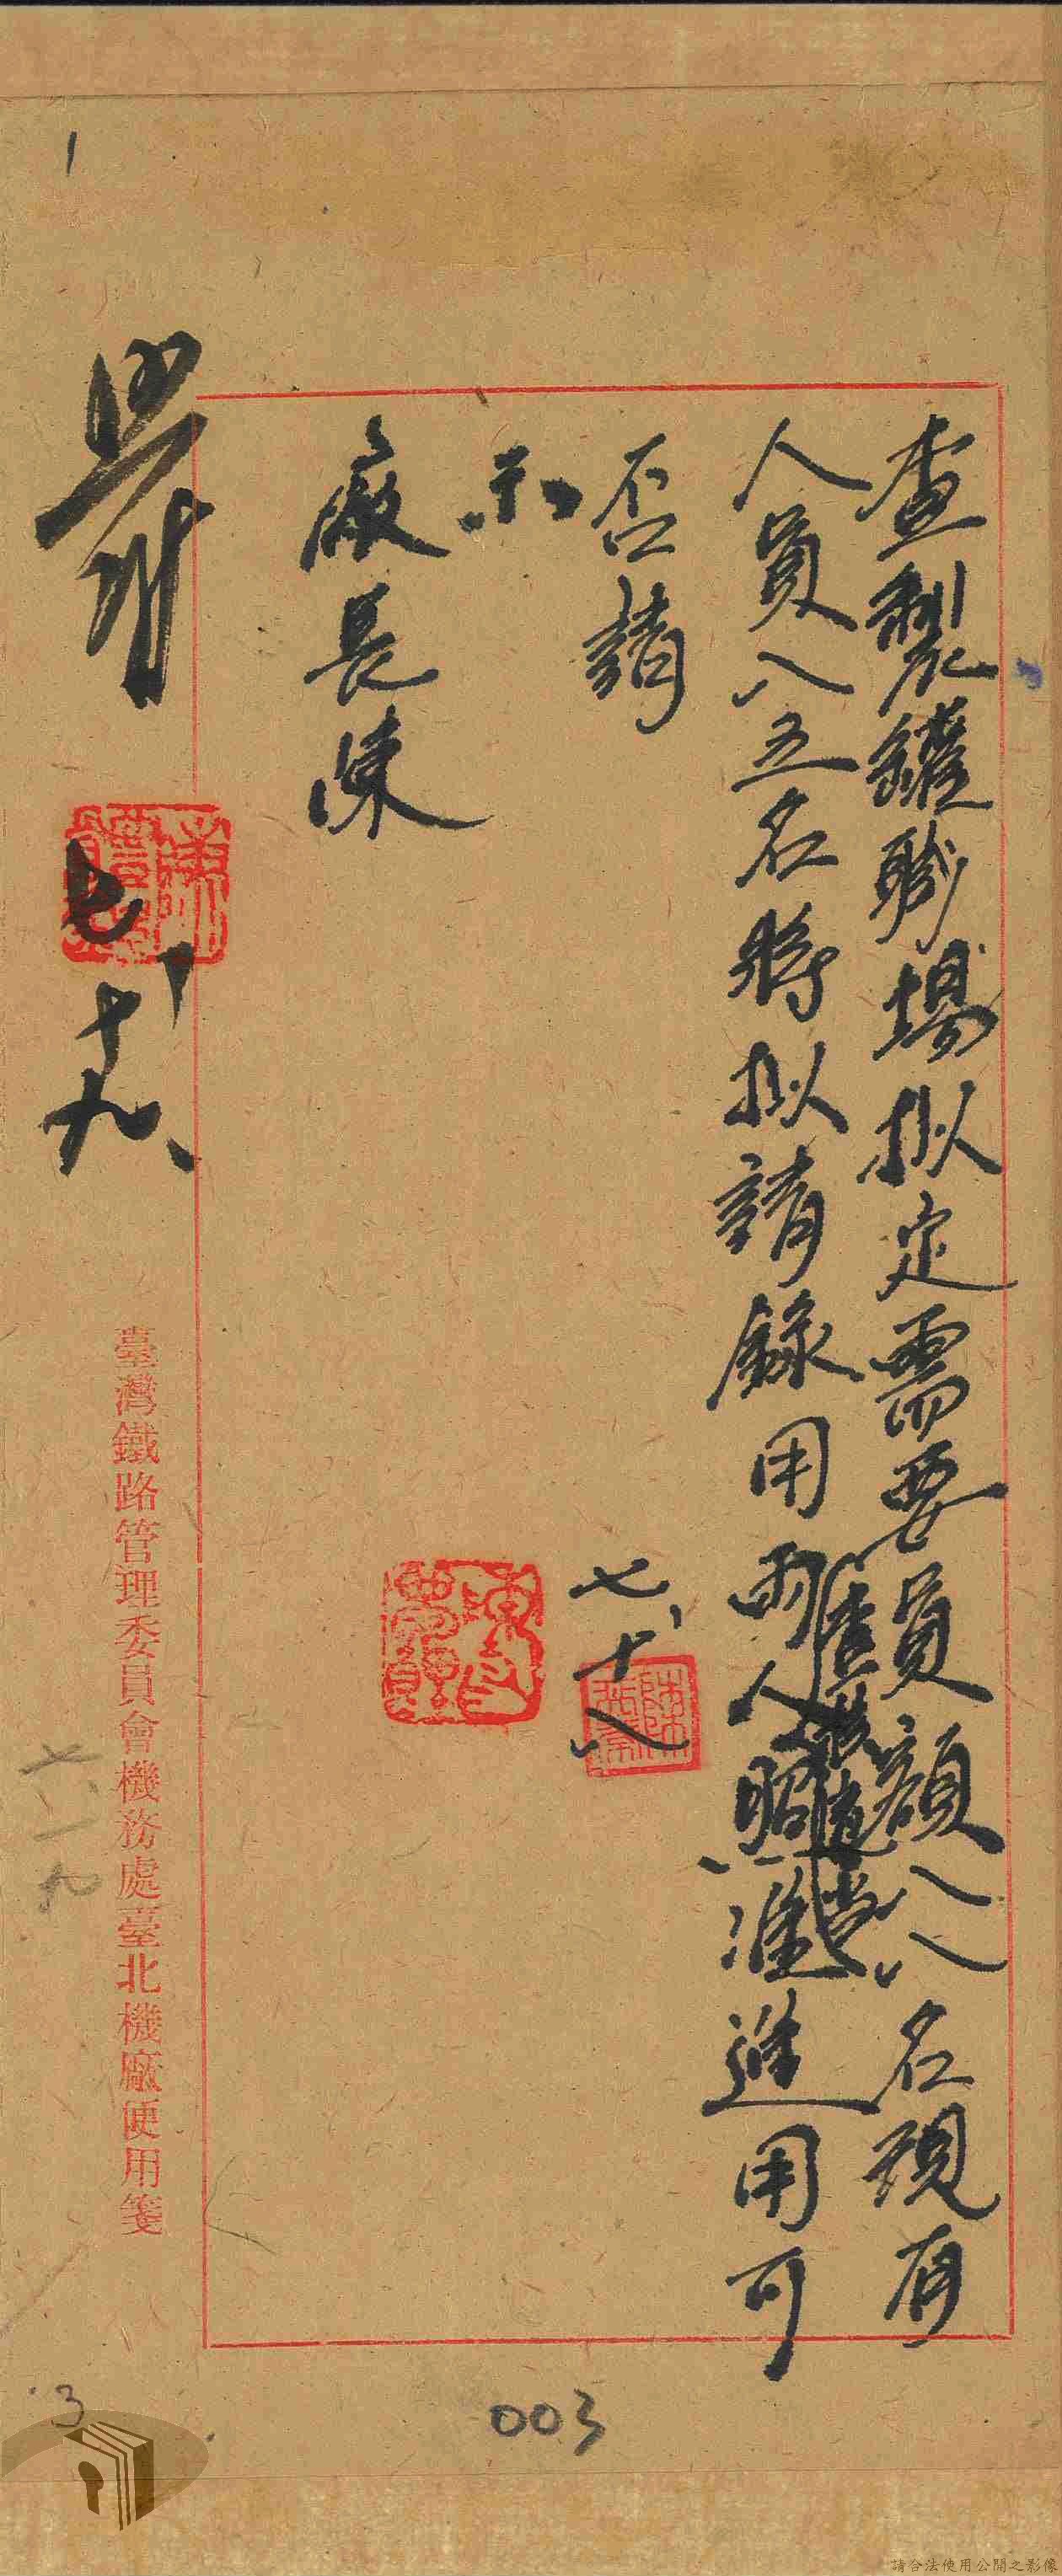 查製罐職場拟定需要員額八八名現有
人員八五名將拟請錄用兩人照准進用可
否請
示
廠長陳
七、十八
七、十九、
臺灣鐵路管理委員會機務處臺北機廠便用箋
七、一九
3
003
請合法使用公開之影像